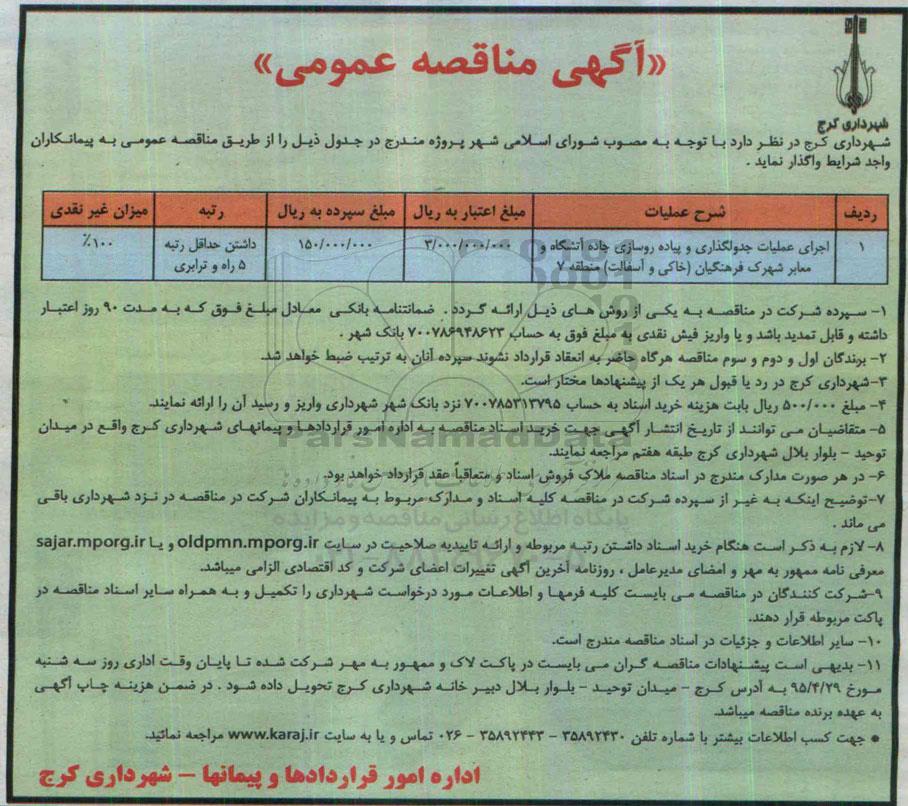 شهرداری کرج
«آگهی مناقصه عمومی»
شهرداری کرج در نظر دارد با توجه به مصوب شورای اسلامی شهر پروژه مندرج در جدول ذیل را از طریق مناقصه عمومی به پیمانکاران
واجد شرایط واگذار نماید .
ردیف شرح عملیات مبلغ اعتبار به ریال مبلغ سپرده به ریال رتبه میزان غیر نقدی
۱ اجرای عملیات جدولگذاری و پیاده روسازی جاده آتشگاه و ۳/۰۰۰/۰۰۰/۰۰۰ ۱۵۰/۰۰۰/۰۰۰ داشتن حداقل رتبه ۱۰۰٪
معابر شهرک فرهنگیان (خاکی و آسفالت) منطقه ۷ ۵ راه و ترابری
۱- سپرده شرکت در مناقصه به یکی از روش های ذیل ارائه گردد . ضمانتنامه بانکی معادل مبلغ فوق که به مدت ۹۰ روز اعتبار
داشته و قابل تمدید باشد و یا واریز فیش نقدی به مبلغ فوق به حساب ۷۰۰۷۸۶۹۴۸۶۲۳ بانک شهر .
۲- برندگان اول و دوم و سوم مناقصه هرگاه حاضر به انعقاد قرارداد نشوند سپرده آنان به ترتیب ضبط خواهد شد.
۳-شهرداری کرج در رد یا قبول هر یک از پیشنهادها مختار است.
۴- مبلغ ۵۰۰/۰۰۰ ریال بابت هزینه خرید اسناد به حساب ۷۰۰۷۸۵۳۱۳۷۹۵ نزد بانک شهر شهرداری واریز و رسید آن را ارائه نمایند.
۵- متقاضیان می توانند از تاریخ انتشار آگهی جهت خرید اسناد مناقصه به اداره امور قراردادها و پیمانهای شهرداری کرج واقع در میدان
توحید - بلوار بلال شهرداری کرج طبقه هفتم مراجعه نمایند.
۶- در هر صورت مدارک مندرج در اسناد مناقصه ملاک فروش اسناد و متعاقباً عقد قرارداد خواهد بود.
۷-توضیح اینکه به غیر از سپرده شرکت در مناقصه کلیه اسناد و مدارک مربوط به پیمانکاران شرکت در مناقصه در نزد شهرداری باقی
می ماند .
۸- لازم به ذکر است هنگام خرید اسناد داشتن رتبه مربوطه و ارائه تاییدیه صلاحیت در سایت oldpmn.mporg.ir و یا sajar.mporg.ir
معرفی نامه ممهور به مهر و امضای مدیرعامل ، روزنامه آخرین آگهی تغییرات اعضای شرکت و کد اقتصادی الزامی میباشد.
۹-شرکت کنندگان در مناقصه می بایست کلیه فرمها و اطلاعات مورد درخواست شهرداری را تکمیل و به همراه سایر اسناد مناقصه در
پاکت مربوطه قرار دهند.
۱۰- سایر اطلاعات و جزئیات در اسناد مناقصه مندرج است.
۱۱- بدیهی است پیشنهادات مناقصه گران می بایست در پاکت لاک و ممهور به مهر شرکت شده تا پایان وقت اداری روز سه شنبه
مورخ ۹۵/۴/۲۹ به آدرس کرج - میدان توحید - بلوار بلال دبیر خانه شهرداری کرج تحویل داده شود . در ضمن هزینه چاپ آگهی
به عهده برنده مناقصه میباشد.
• جهت کسب اطلاعات بیشتر با شماره تلفن ۳۵۸۹۲۴۳۰ - ۳۵۸۹۲۴۴۳ - ۰۲۶ تماس و یا به سایت www.karaj.ir مراجعه نمائید.
اداره امور قراردادها و پیمانها – شهرداری کرج
ParsNamadData
پایگاه اطلاع رسانی مناقصه و مزایده